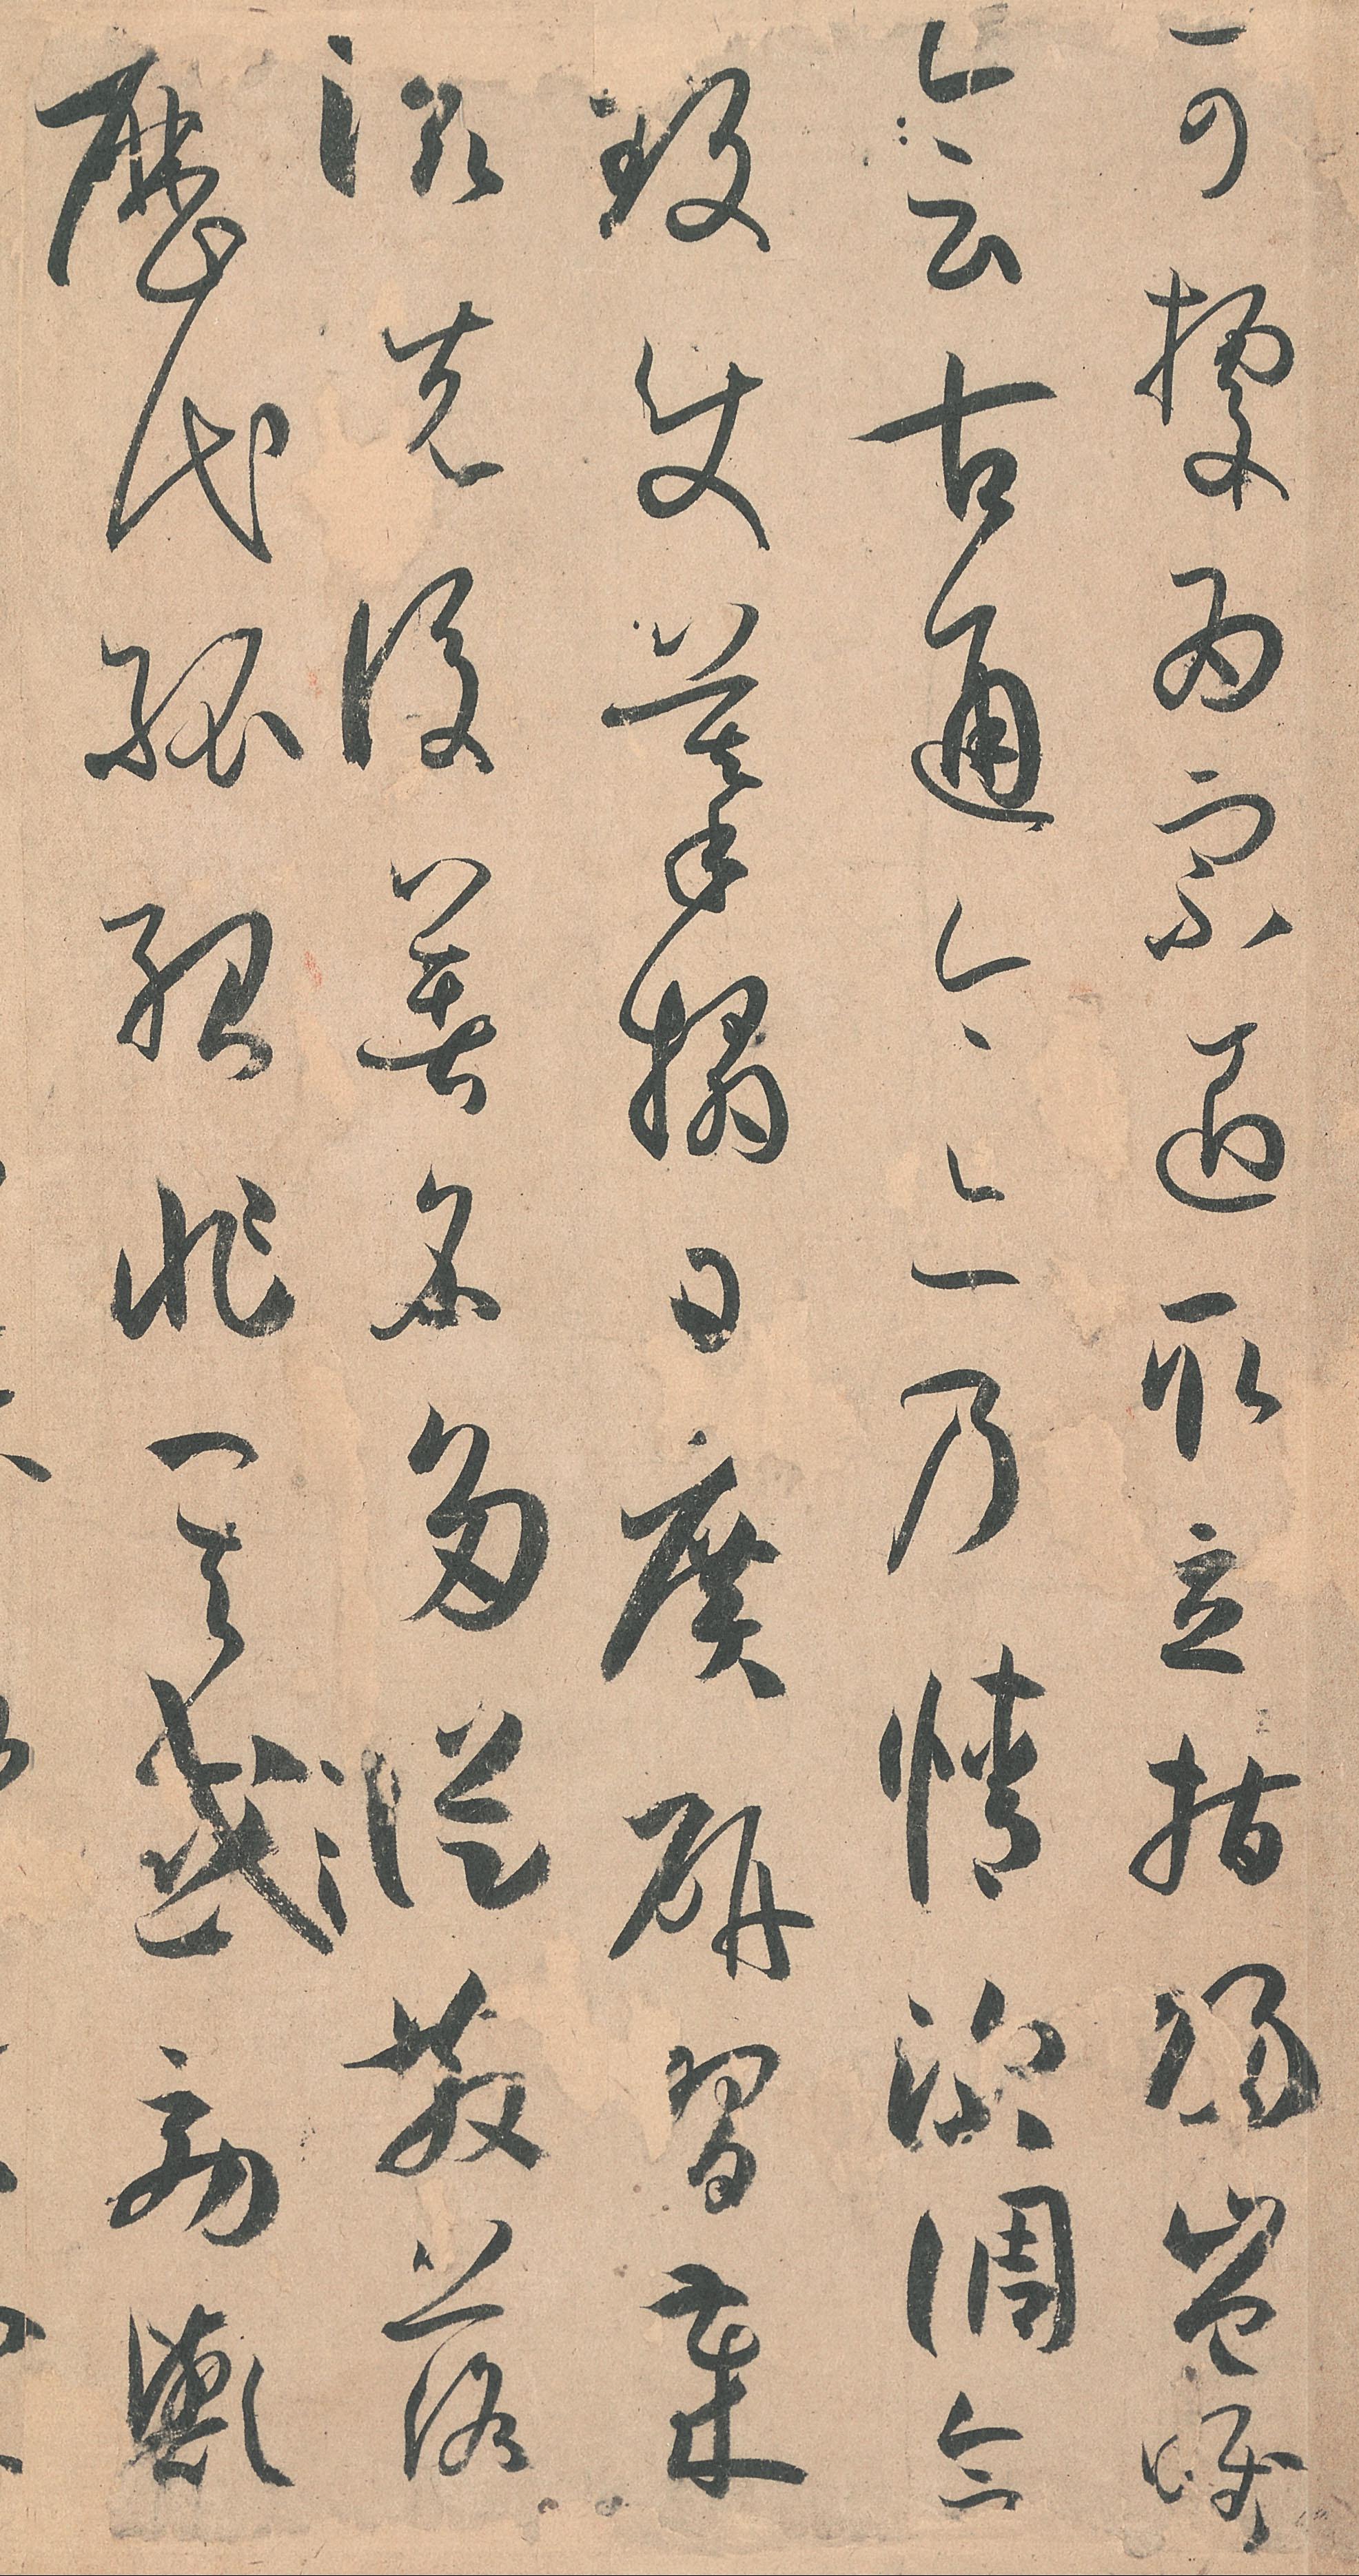 可據為宗匠取立指歸豈惟
會古通今亦乃情深調合
致使摹搨日廣研習歲
滋先後著名多從散落
歷代孤紹非其效歟